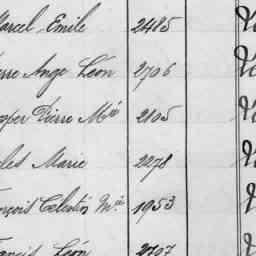 Marcel Emile 2485
erre Ange Léon 2706
sper Pierre Mie 2105
les Marie 2278
ançois Célestin Mie 1953
ançis Léon 2707